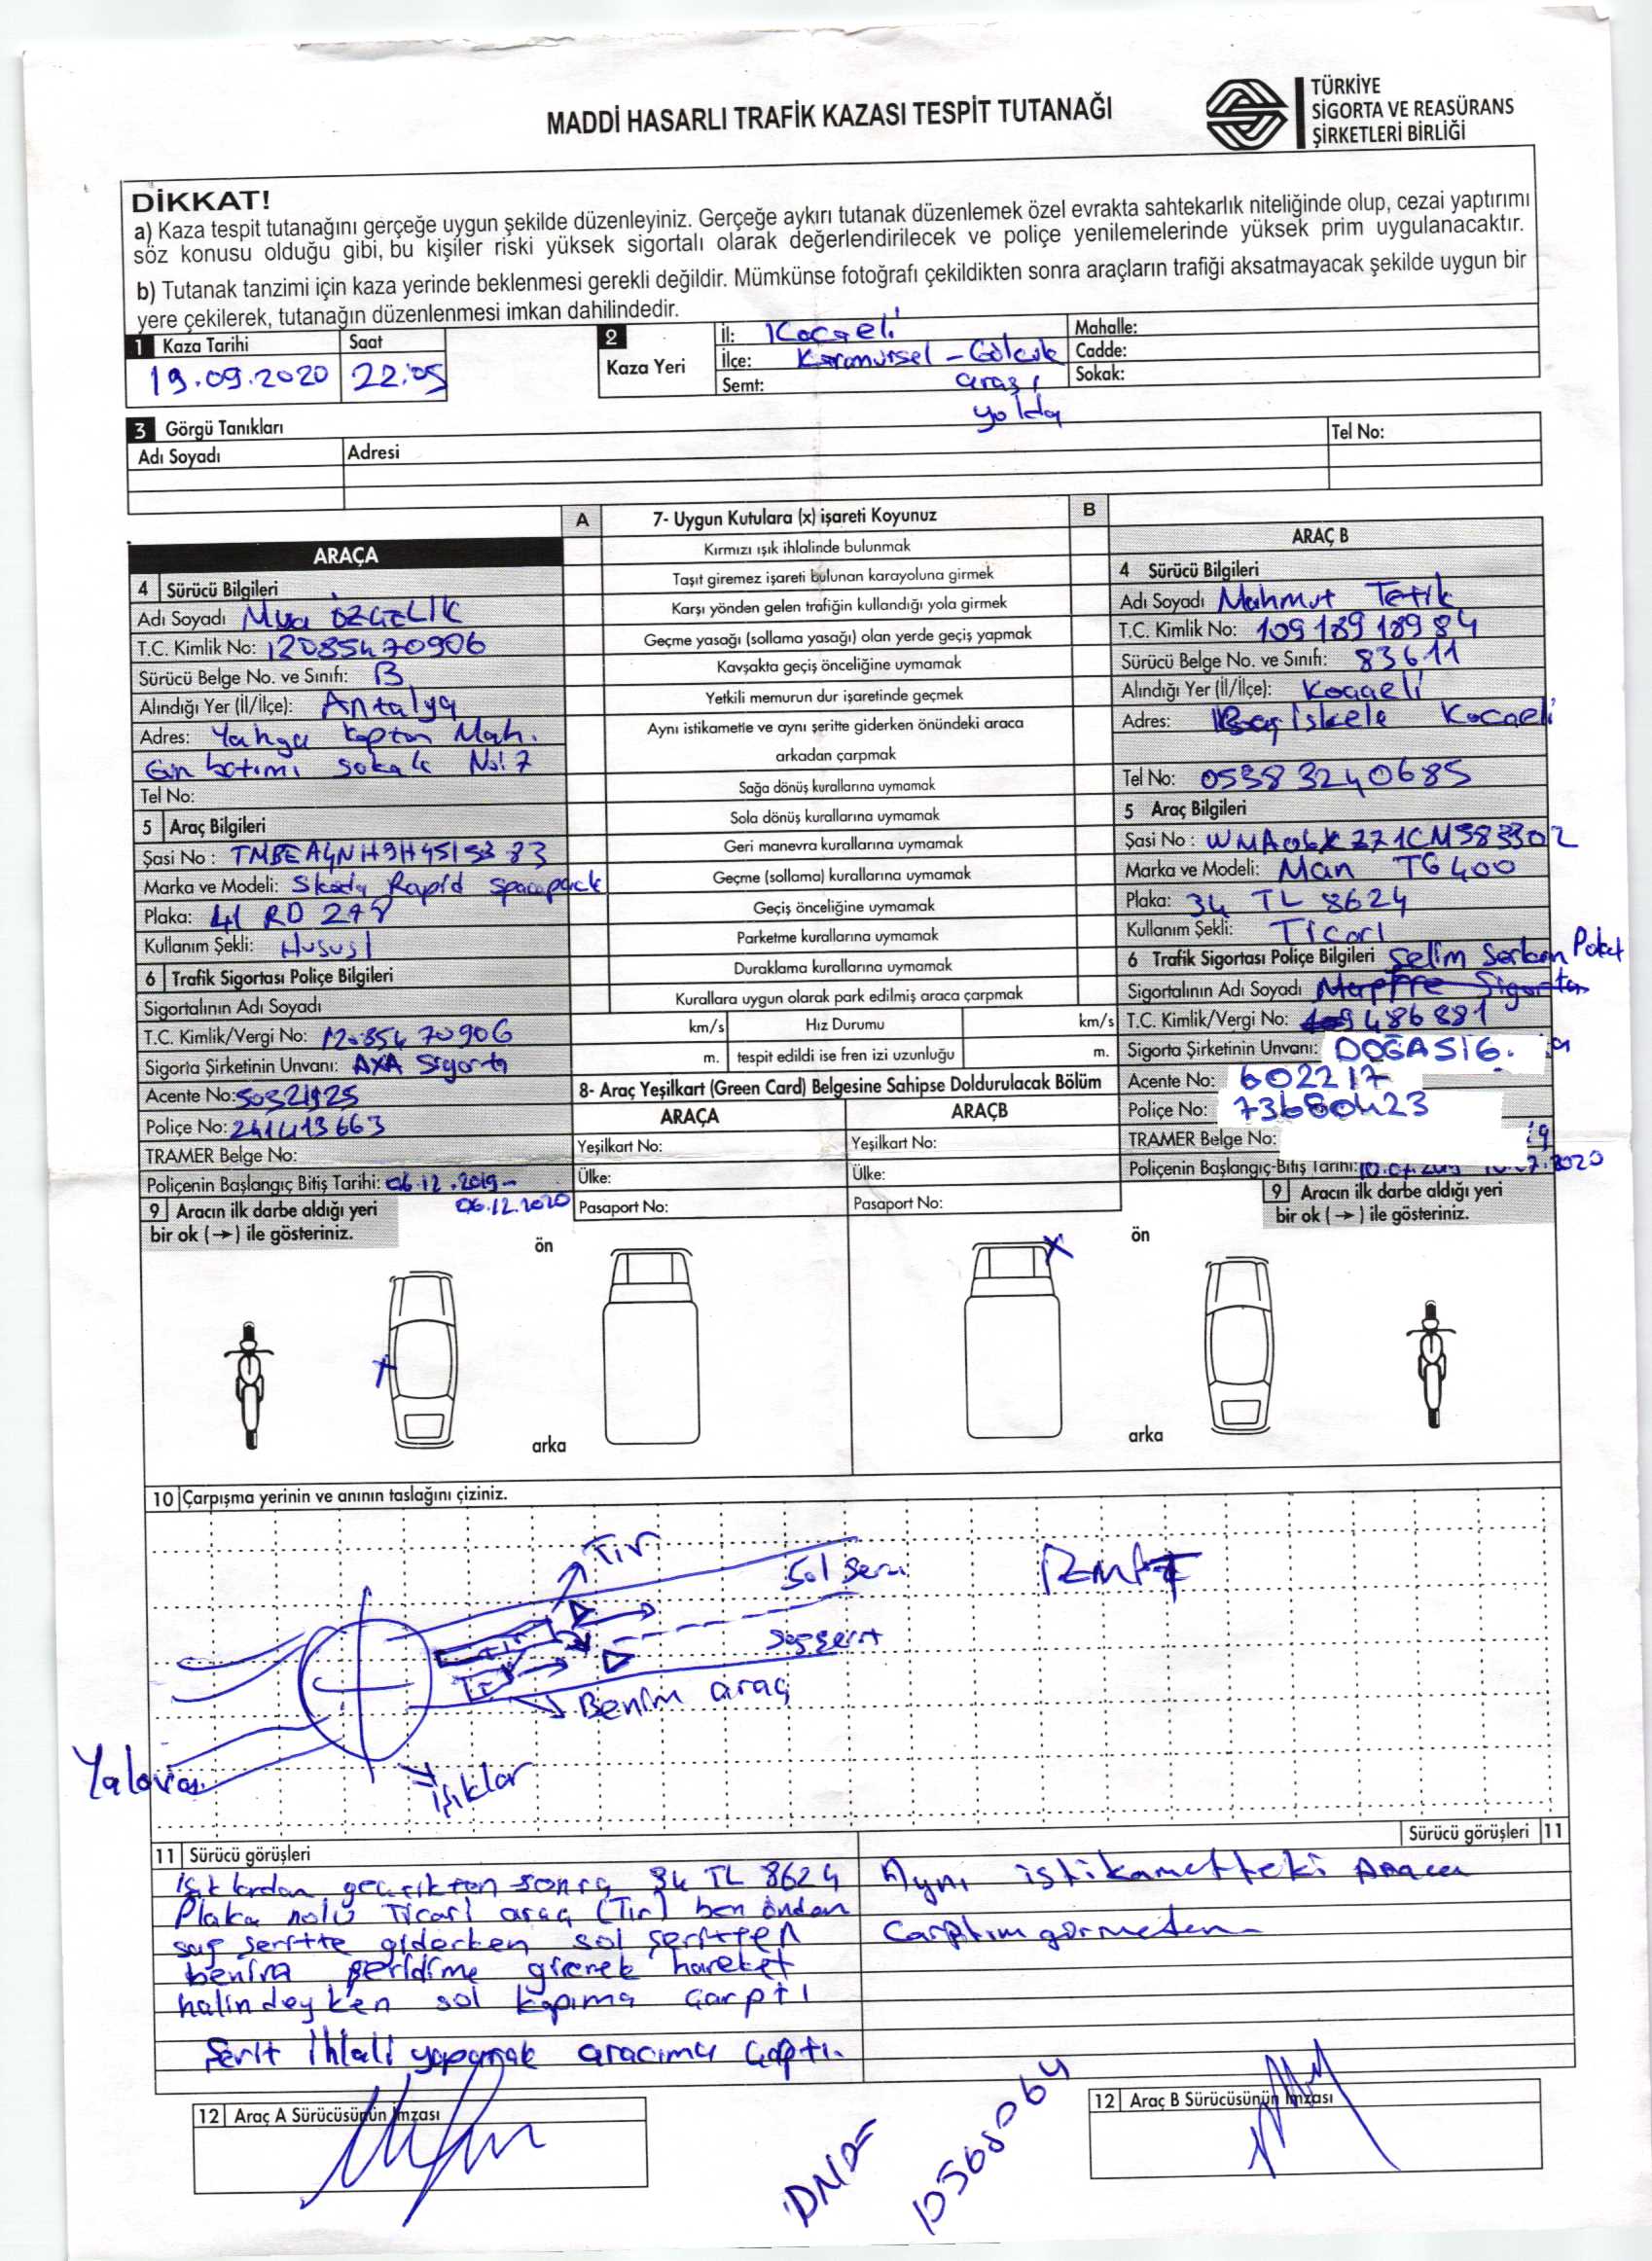 MADDİ HASARLI TRAFİK KAZASI TESPİT TUTANAĞI
TÜRKİYE
SİGORTA VE REASÜRANS
ŞİRKETLERİ BİRLİĞİ
DİKKAT!
a) Kaza tespit tutanağını gerçeğe uygun şekilde düzenleyiniz. Gerçeğe aykırı tutanak düzenlemek özel evrakta sahtekarlık niteliğinde olup, cezai yaptırımı
söz konusu olduğu gibi, bu kişiler riski yüksek sigortalı olarak değerlendirilecek ve poliçe yenilemelerinde yüksek prim uygulanacaktır.
b) Tutanak tanzimi için kaza yerinde beklenmesi gerekli değildir. Mümkünse fotoğrafı çekildikten sonra araçların trafiği aksatmayacak şekilde uygun bir
yere çekilerek, tutanağın düzenlenmesi imkan dahilindedir.
1 Kaza Tarihi Saat
19.09.2020 22:05
2 Kaza Yeri
İl: Kocaeli
İlçe: Karamürsel - Gölcük
Semt: arası
yolda
Mahalle:
Cadde:
Sokak:
3 Görgü Tanıkları
Adı Soyadı Adresi Tel No:
ARAÇA
4 Sürücü Bilgileri
Adı Soyadı ÖZÇELİK
T.C. Kimlik No: 12085470906
Sürücü Belge No. ve Sınıfı: B
Alındığı Yer (İl/İlçe): Antalya
Adres: kaptan Mah.
Gün batımı sokak No: 7
Tel No:
5 Araç Bilgileri
Şasi No: TMBEA4NH9H4515383
Marka ve Modeli: Skoda Rapid spaceback
Plaka: 41 RD 278
Kullanım Şekli: Hususi
6 Trafik Sigortası Poliçe Bilgileri
Sigortalının Adı Soyadı
T.C. Kimlik/Vergi No: 12085470906
Sigorta Şirketinin Unvanı: AXA Sigorta
Acente No:
Poliçe No: 241413663
TRAMER Belge No:
Poliçenin Başlangıç Bitiş Tarihi: 06.12.2019 -
06.12.2020
A 7- Uygun Kutulara (x) işareti Koyunuz B
Kırmızı ışık ihlalinde bulunmak
Taşıt giremez işareti bulunan karayoluna girmek
Karşı yönden gelen trafiğin kullandığı yola girmek
Geçme yasağı (sollama yasağı) olan yerde geçiş yapmak
Kavşakta geçiş önceliğine uymamak
Yetkili memurun dur işaretinde geçmek
Aynı istikamette ve aynı şeritte giderken önündeki araca
arkadan çarpmak
Sağa dönüş kurallarına uymamak
Sola dönüş kurallarına uymamak
Geri manevra kurallarına uymamak
Geçme (sollama) kurallarına uymamak
Geçiş önceliğine uymamak
Parketme kurallarına uymamak
Duraklama kurallarına uymamak
Kurallara uygun olarak park edilmiş araca çarpmak
km/s Hız Durumu km/s
m. tespit edildi ise fren izi uzunluğu m.
8- Araç Yeşilkart (Green Card) Belgesine Sahipse Doldurulacak Bölüm
ARAÇA ARAÇB
Yeşilkart No: Yeşilkart No:
Ülke: Ülke:
Pasaport No: Pasaport No:
ARAÇ B
4 Sürücü Bilgileri
Adı Soyadı Mahmut Tetik
T.C. Kimlik No: 10918918984
Sürücü Belge No. ve Sınıfı: 83611
Alındığı Yer (İl/İlçe): Kocaeli
Adres: Başiskele Kocaeli
Tel No: 05383240685
5 Araç Bilgileri
Şasi No:
Marka ve Modeli: Man TG 400
Plaka: 34 TL 8624
Kullanım Şekli: Ticari
6 Trafik Sigortası Poliçe Bilgileri Selim Serkan
Sigortalının Adı Soyadı Mapfre Sigorta
T.C. Kimlik/Vergi No: 486881
Sigorta Şirketinin Unvanı: DOĞA SİG.
Acente No: 602217
Poliçe No: 73680423
TRAMER Belge No:
Poliçenin Başlangıç-Bitiş Tarihi: 10.07.2019 10.07.2020
9 Aracın ilk darbe aldığı yeri
bir ok (→) ile gösteriniz.
9 Aracın ilk darbe aldığı yeri
bir ok (→) ile gösteriniz.
ön ön
arka arka
10 Çarpışma yerinin ve anının taslağını çiziniz.
Tır
Sol şerit
İzmit
Sağ şerit
Tır
Benim araç
Yalova
Işıklar
11 Sürücü görüşleri
Işıklardan geçtikten sonra 34 TL 8624
Plaka nolu Ticari araç (Tır) ben önden
sağ şeritte giderken sol şeritten
benim şeridime girerek hareket
halindeyken sol kapıma çarptı
Şerit ihlali yaparak aracıma çarptı.
Sürücü görüşleri 11
Aynı istikametteki Araca
Çarptım görmeden
12 Araç A Sürücüsünün İmzası
12 Araç B Sürücüsünün İmzası
10568064